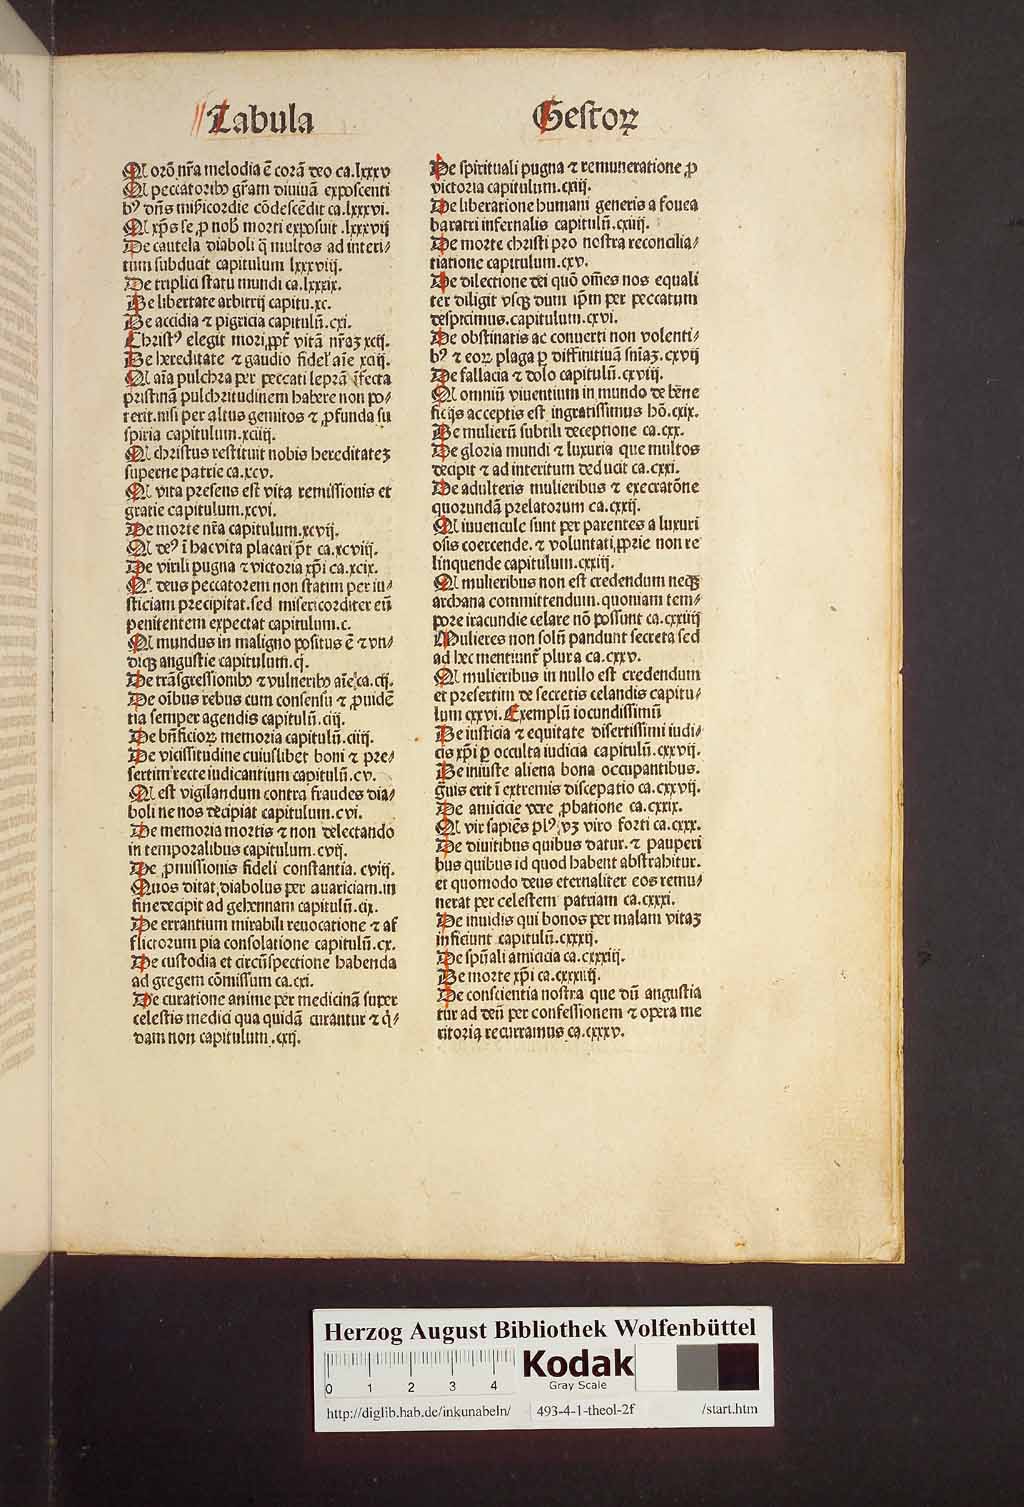 Tabula
Qꝫ orō nr̄a melodia ē corā deo ca.lxxxv
Qꝫ peccatoribꝫ gr̄am diuinā exposcenti
bꝰ dn̄s misericordie cōdescēdit ca.lxxxvi.
Qꝫ xp̄s se ꝓ nob̄ morti exposuit .lxxxvij
De cautela diaboli q̄ multos ad interi⸗
tum subducit capitulum lxxxviij.
De triplici statu mundi ca.lxxxix.
De libertate arbitrij capitu.xc.
De accidia ⁊ pigricia capitulū.cxi.
Christꝰ elegit mori ꝓpt̄ vitā nr̄aꝫ xcij.
De hereditate ⁊ gaudio fidel' aīe xciij.
Qꝫ aīa pulchra per peccati leprā īfecta
pristinā pulchritudinem habere non po⸗
terit.nisi per altus gemitos ⁊ ꝓfunda su
spiria capitulum.xciiij.
Qꝫ christus restituit nobis hereditateꝫ
superne patrie ca.xcv.
Qꝫ vita presens est vita remissionis et
gratie capitulum.xcvi.
De morte nr̄a capitulum.xcvij.
Qꝫ deꝰ ī hac vita placari p̄t ca.xcviij.
De virili pugna ⁊ victoria xp̄i ca.xcix.
deus peccatorem non statim per iu⸗
sticiam precipitat.sed misericorditer eū
penitentem expectat capitulum.c.
Qꝫ mundus in maligno positus ē ⁊ vn⸗
diqꝫ angustie capitulum.cj.
De trāsgressionibꝫ ⁊ vulneribꝫ aīe ca.cij.
De oībus rebus cum consensu ⁊ ꝓuidē
tia semper agendis capitulū.ciij.
De bn̄ficioꝝ memoria capitulū.ciiij.
De vicissitudine cuiuslibet boni ⁊ pre⸗
sertim recte iudicantium capitulū.cv.
Qꝫ est vigilandum contra fraudes dia⸗
boli ne nos decipiat capitulum.cvi.
De memoria mortis ⁊ non delectando
in temporalibus capitulum.cvij.
De ꝓmissionis fideli constantia. cviij.
Quos ditat diabolus per auariciam.in
fine decipit ad gehennam capitulū.cix.
De errantium mirabili reuocatione ⁊ af
flictorum pia consolatione capitulū.cx.
De custodia et circūspectione habenda
ad gregem cōmissum ca.cxi.
De curatione anime per medicinā super
celestis medici qua quidā curantur ⁊ q̄⸗
dam non capitulum .cxij.
Gestoꝝ
De spirituali pugna ⁊ remuneratione ꝓ
victoria capitulum.cxiij.
De liberatione humani generis a fouea
baratri infernalis capitulū.cxiiij.
De morte christi pro nostra reconcilia⸗
tiatione capitulum.cxv.
De dilectione dei quō om̄es nos equali
ter diligit vsqꝫ dum ip̄m per peccatum
despicimus.capitulum.cxvi.
De obstinatis ac conuerti non volenti⸗
bꝰ ⁊ eoꝝ plaga ꝑ diffinitiuā sn̄iaꝫ.cxvij
De fallacia ⁊ dolo capitulū.cxviij.
Qꝫ omniū viuentium in mundo de bene
ficijs acceptis est ingratissimus hō.cxix.
De mulierū subtili deceptione ca.cxx.
De gloria mundi ⁊ luxuria que multos
decipit ⁊ ad interitum deducit ca.cxxi.
De adulteris mulieribus ⁊ execratōne
quorundā prelatorum ca.cxxij.
Qꝫ iuuencule sunt per parentes a luxuri
osis coercende. ⁊ voluntati ꝓprie non re
linquende capitulum.cxxiij.
Qꝫ mulieribus non est credendum neqꝫ
archana committendum. quoniam tem⸗
pore iracundie celare nō possunt ca.cxxiiij
Mulieres non solū pandunt secreta sed
ad hec mentiunt᷑ plura ca.cxxv.
Qꝫ mulieribus in nullo est credendum
et presertim de secretis celandis capitu⸗
lum cxxvi. Exemplū iocundissimū
De iusticia ⁊ equitate disertissimi iudi⸗
cis xp̄i ꝑ occulta iudicia capitulū.cxxvij.
De iniuste aliena bona occupantibus.
quis erit ī extremis disceptatio ca.cxxvij.
De amicicie vere ꝓbatione ca.cxxix.
Qꝫ vir sapiēs plꝰ vꝫ viro forti ca.cxxx.
De diuitibus quibus datur. ⁊ pauperi
bus quibus id quod habent abstrahitur.
et quomodo deus eternaliter eos remu⸗
nerat per celestem patriam ca.cxxxi.
De inuidis qui bonos per malam vitaꝫ
inficiunt capitulū.cxxxij.
De sp̄uali amicicia ca.cxxxiij.
De morte xp̄i ca.cxxxiiij.
De conscientia nostra que dū angustia
tur ad deū per confessionem ⁊ opera me
ritoria recurramus ca.cxxxv.
Herzog August Bibliothek Wolfenbüttel
0 1 2 3 4
Kodak
Gray Scale
http://diglib.hab.de/inkunabeln/ 493-4-1-theol-2f /start.htm